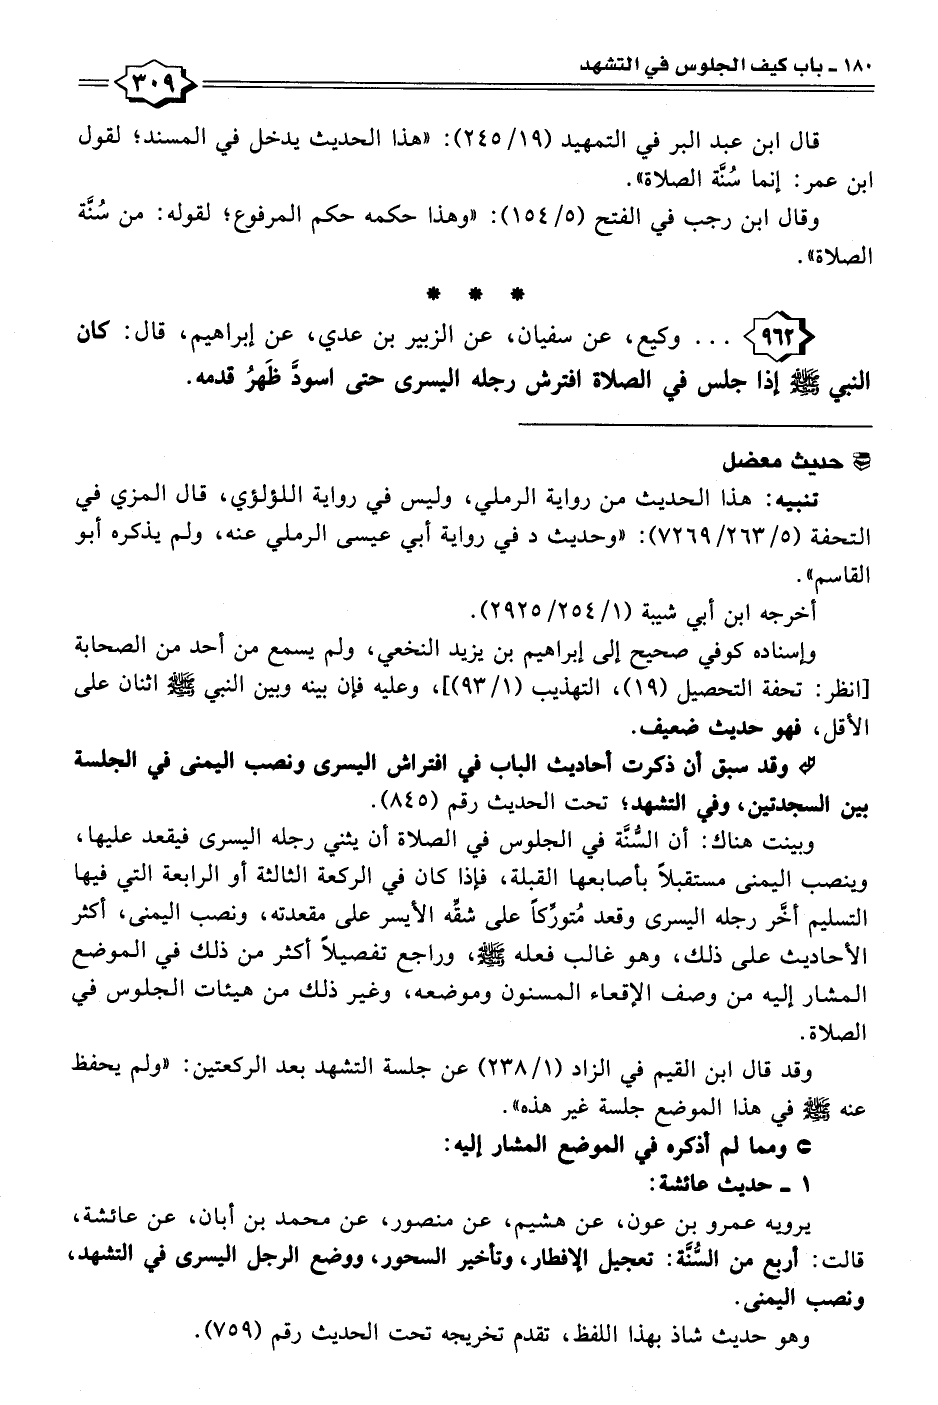 ١٨٠ - باب كيف الجلوس في التشهد
٣٠٩
قال ابن عبد البر في التمهيد (١٩/ ٢٤٥): «هذا الحديث يدخل في المسند؛ لقول
ابن عمر: إنما سُنَّة الصلاة».
وقال ابن رجب في الفتح (٥/ ١٥٤): «وهذا حكمه حكم المرفوع؛ لقوله: من سُنَّة
الصلاة».
* * *
٩٦٢ ... وكيع، عن سفيان، عن الزبير بن عدي، عن إبراهيم، قال: كان
النبي ﷺ إذا جلس في الصلاة افترش رجله اليسرى حتى اسودَّ ظَهرُ قدمه.
حديث معضل
تنبيه: هذا الحديث من رواية الرملي، وليس في رواية اللؤلؤي، قال المزي في
التحفة (٥/ ٢٦٣/ ٧٢٦٩): «وحديث د في رواية أبي عيسى الرملي عنه، ولم يذكره أبو
القاسم».
أخرجه ابن أبي شيبة (١/ ٢٥٤/ ٢٩٢٥).
وإسناده كوفي صحيح إلى إبراهيم بن يزيد النخعي، ولم يسمع من أحد من الصحابة
[انظر: تحفة التحصيل (١٩)، التهذيب (١/ ٩٣)]، وعليه فإن بينه وبين النبي ﷺ اثنان على
الأقل، فهو حديث ضعيف.
وقد سبق أن ذكرت أحاديث الباب في افتراش اليسرى ونصب اليمنى في الجلسة
بين السجدتين، وفي التشهد؛ تحت الحديث رقم (٨٤٥).
وبينت هناك: أن السُّنَّة في الجلوس في الصلاة أن يثني رجله اليسرى فيقعد عليها،
وينصب اليمنى مستقبلاً بأصابعها القبلة، فإذا كان في الركعة الثالثة أو الرابعة التي فيها
التسليم أخَّر رجله اليسرى وقعد مُتورِّكاً على شقِّه الأيسر على مقعدته، ونصب اليمنى، أكثر
الأحاديث على ذلك، وهو غالب فعله ﷺ، وراجع تفصيلاً أكثر من ذلك في الموضع
المشار إليه من وصف الإقعاء المسنون وموضعه، وغير ذلك من هيئات الجلوس في
الصلاة.
وقد قال ابن القيم في الزاد (١/ ٢٣٨) عن جلسة التشهد بعد الركعتين: «ولم يحفظ
عنه ﷺ في هذا الموضع جلسة غير هذه».
ومما لم أذكره في الموضع المشار إليه:
١ - حديث عائشة:
يرويه عمرو بن عون، عن هشيم، عن منصور، عن محمد بن أبان، عن عائشة،
قالت: أربع من السُّنَّة: تعجيل الإفطار، وتأخير السحور، ووضع الرجل اليسرى في التشهد،
ونصب اليمنى.
وهو حديث شاذ بهذا اللفظ، تقدم تخريجه تحت الحديث رقم (٧٥٩).